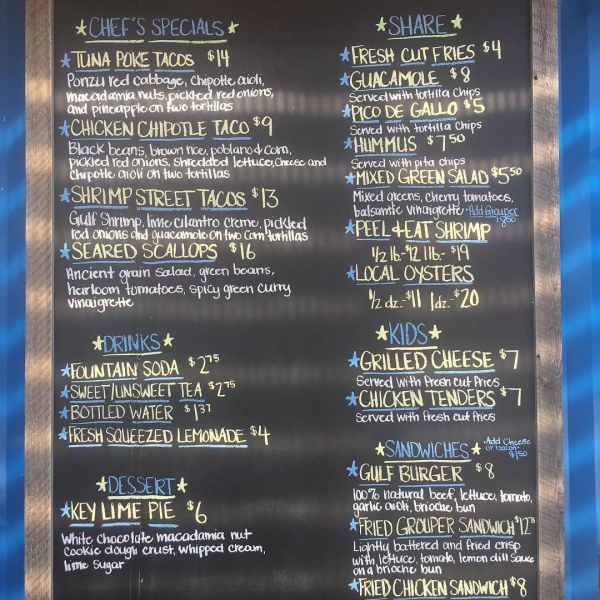 CHEF'S SPECIALS
TUNA POKE TACOS $14
Ponzu red cabbage, Chipotle aioli,
macadamia nuts, pickled red onions,
and pineapple on two tortillas
CHICKEN CHIPOTLE TACO $9
Black beans, brown rice, poblano & corn,
pickled red onions, shredded lettuce, cheese and
chipotle aioli on two tortillas
SHRIMP STREET TACOS $13
Gulf Shrimp, lime cilantro creme, pickled
red onions and guacamole on two corn tortillas
SEARED SCALLOPS $16
Ancient grain salad, green beans,
heirloom tomatoes, spicy green curry
vinaigrette
DRINKS
FOUNTAIN SODA $2.75
SWEET/UNSWEET TEA $2.75
BOTTLED WATER $1.37
FRESH SQUEEZED LEMONADE $4
DESSERT
KEY LIME PIE $6
White chocolate macadamia nut
cookie dough crust, whipped cream,
lime sugar
SHARE
FRESH CUT FRIES $4
GUACAMOLE $8
Served with tortilla chips
PICO DE GALLO $5
Served with tortilla chips
HUMMUS $7.50
Served with pita chips
MIXED GREEN SALAD $5.50
Mixed greens, cherry tomatoes,
balsamic vinaigrette Add Grouper
PEEL + EAT SHRIMP
1/2 lb.-$12 1lb.-$19
LOCAL OYSTERS
1/2 dz.-$11 1dz.-$20
KIDS
GRILLED CHEESE $7
Served with fresh cut fries
CHICKEN TENDERS $7
Served with fresh cut fries
SANDWICHES Add Cheese
or bacon
$1.50
GULF BURGER $8
100% natural beef, lettuce, tomato,
garlic aioli, brioche bun
FRIED GROUPER SANDWICH $12
Lightly battered and fried crisp
with lettuce, tomato, lemon dill sauce
on a brioche bun
FRIED CHICKEN SANDWICH $8